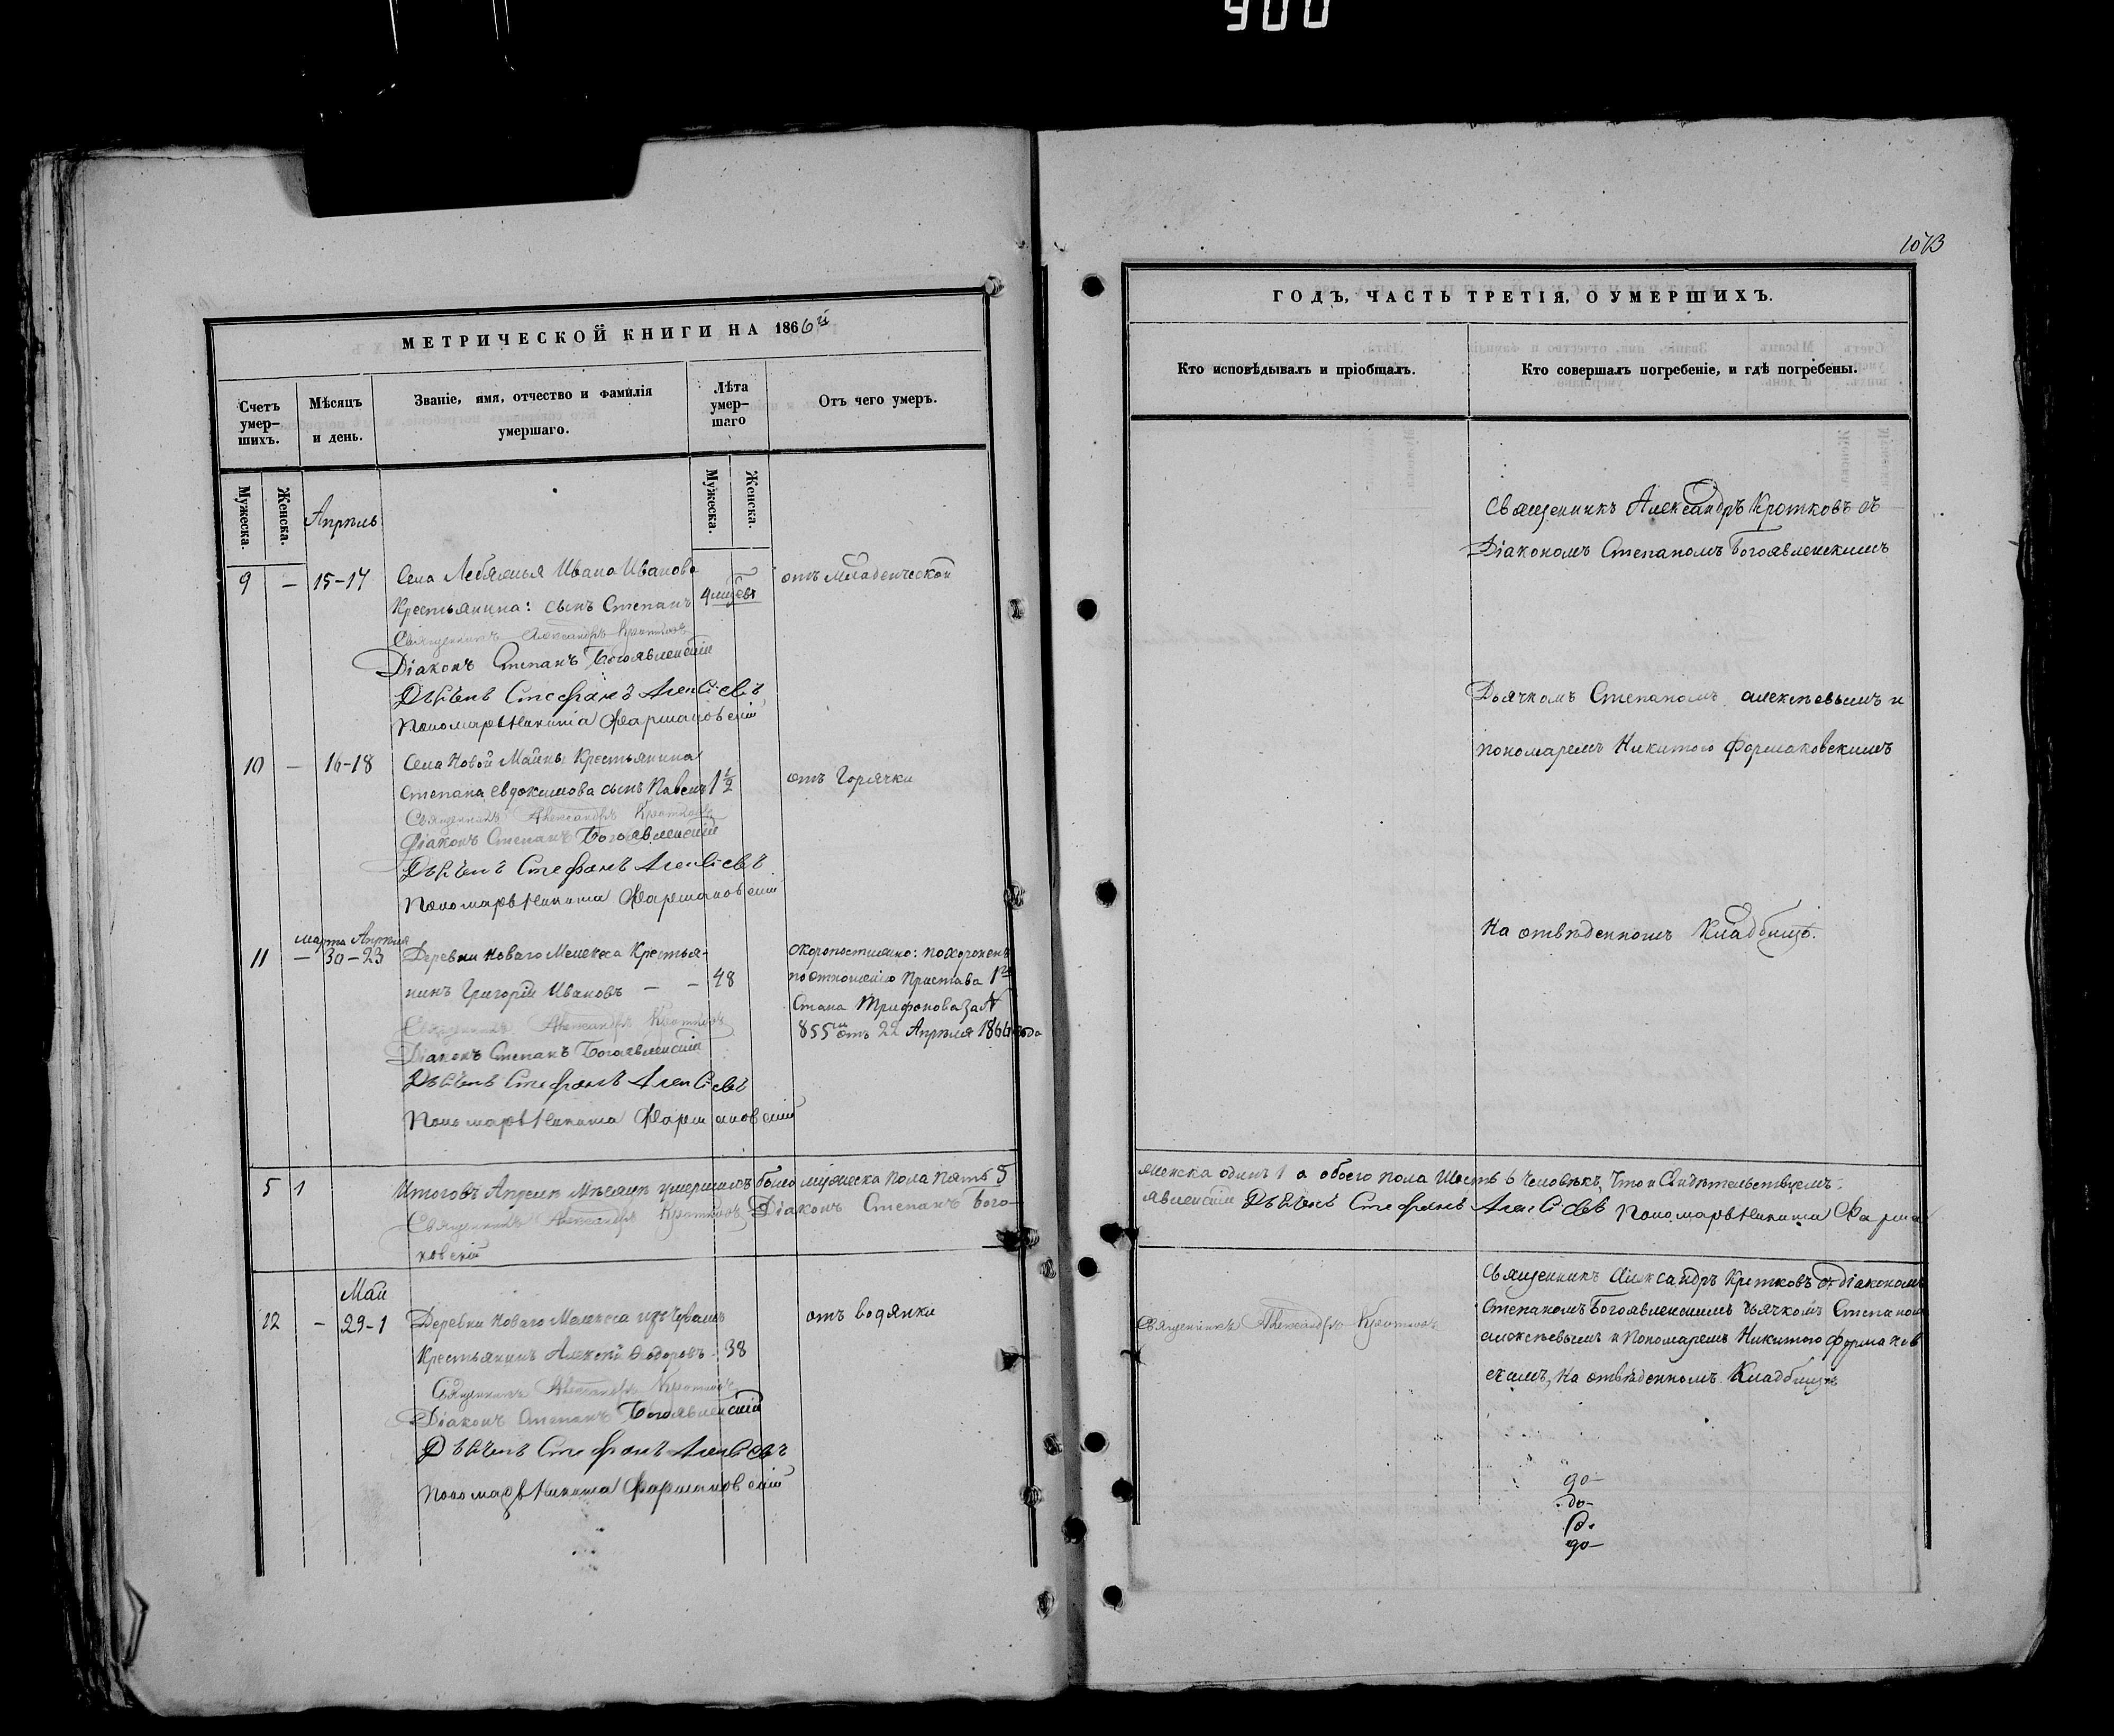 900
МЕТРИЧЕСКОЙ КНИГИ НА 1866й
Счетъ умер-шихъ.
Мѣсяцъ и день.
Званіе, имя, отчество и фамилія умершаго.
Лѣта умер-шаго
Отъ чего умеръ.
Мужеска.
Женска.
Мужеска.
Женска.
Апрѣль
9 — 15-17 Села Лебяжья Ивана Иванова отъ младенческой
Крестьянина: сынъ Степанъ
Священникъ Александръ Кротковъ
Діаконъ Степанъ Богоявленскій
Дьячекъ Стефанъ Алексѣевъ
Пономарь Никита Фармаковскій
10 — 16-18 Села Новой Майны Крестьянина
Степана Евдокимова сынъ Павелъ 1½ отъ Горячки
Священникъ Александръ Кротковъ
Діаконъ Степанъ Богоявленскій
Дьячекъ Стефанъ Алексѣевъ
Пономарь Никита Фармаковскій
Марта Апрѣля
11 — 30-23 Деревни Новаго Мелекеса Крестья- скоропостижно: похороненъ
нинъ Григорій Ивановъ — — 48 по отношенію Пристава 1го
Стана Трифонова за №
855мъ отъ 22 Апрѣля 1866 года
Священникъ Александръ Кротковъ
Діаконъ Степанъ Богоявленскій
Дьячекъ Стефанъ Алексѣевъ
Пономарь Никита Фармаковскій
5 1 Итогов Апрелѣ Мѣсяцѣ умершихъ было мужеска пола пять 5
Священникъ Александръ Кротковъ Діаконъ Степанъ Бого-
ковскій
Май
12 — 29-1 Деревни Новаго Мелекеса изъ Чувашъ отъ водянки
Крестьянинъ Алексѣй Ѳеодоровъ 38
Священникъ Александръ Кротковъ
Діаконъ Степанъ Богоявленскій
Дьячекъ Стефанъ Алексѣевъ
Пономарь Никита Фармаковскій
1073
ГОДЪ, ЧАСТЬ ТРЕТІЯ, О УМЕРШИХЪ.
Кто исповѣдывалъ и пріобщалъ.
Кто совершалъ погребеніе, и гдѣ погребены.
Священникъ Александръ Кротковъ съ
Діакономъ Степаномъ Богоявленскимъ
Дьячкомъ Степаномъ Алексѣевымъ и
пономаремъ Никитою Формаковскимъ
На отвѣденномъ Кладбищѣ.
женска одинъ 1 а обоего пола Шесть 6 Человѣкъ, Что и Свидѣтельствуемъ.
явленскій Дьячекъ Стефанъ Алексѣевъ Пономарь Никита Фарма
Священникъ Александръ Кротковъ съ діакономъ
Священникъ Александръ Кротковъ Степаномъ Богоявленскимъ Дьячкомъ Степаном
Алексѣевымъ и Пономаремъ Никитою Формаков
скимъ, На отвѣденномъ Кладбищѣ